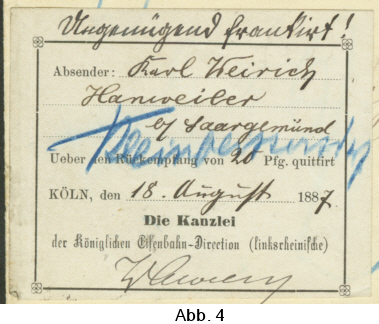 Ungenügend frankirt!
Absender: Karl Weirich
Hanweiler
b/ Saargemünd
Ueber den Rückempfang von 20 Pfg. quittirt
KÖLN, den 18. August 1887.
Die Kanzlei
der Königlichen Eisenbahn-Direction (linksrheinische)
Abb. 4